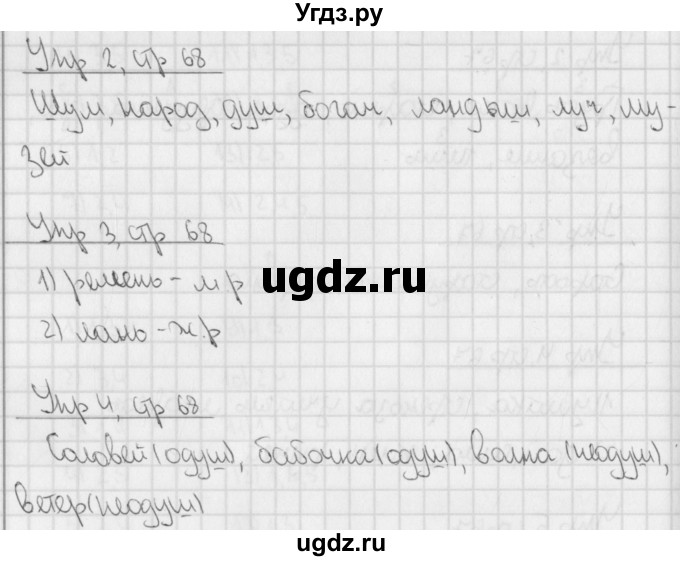 Угдз.ру
Упр 2, стр 68
Шум, народ, душ, богач, ландыш, луч, му-
зей
Упр 3, стр 68
1) ремень - м р
2) лань - ж.р
Упр 4, стр 68
Соловей (одуш), бабочка (одуш), волна (неодуш),
ветер (неодуш)
ugdz.ru
ugdz.ru